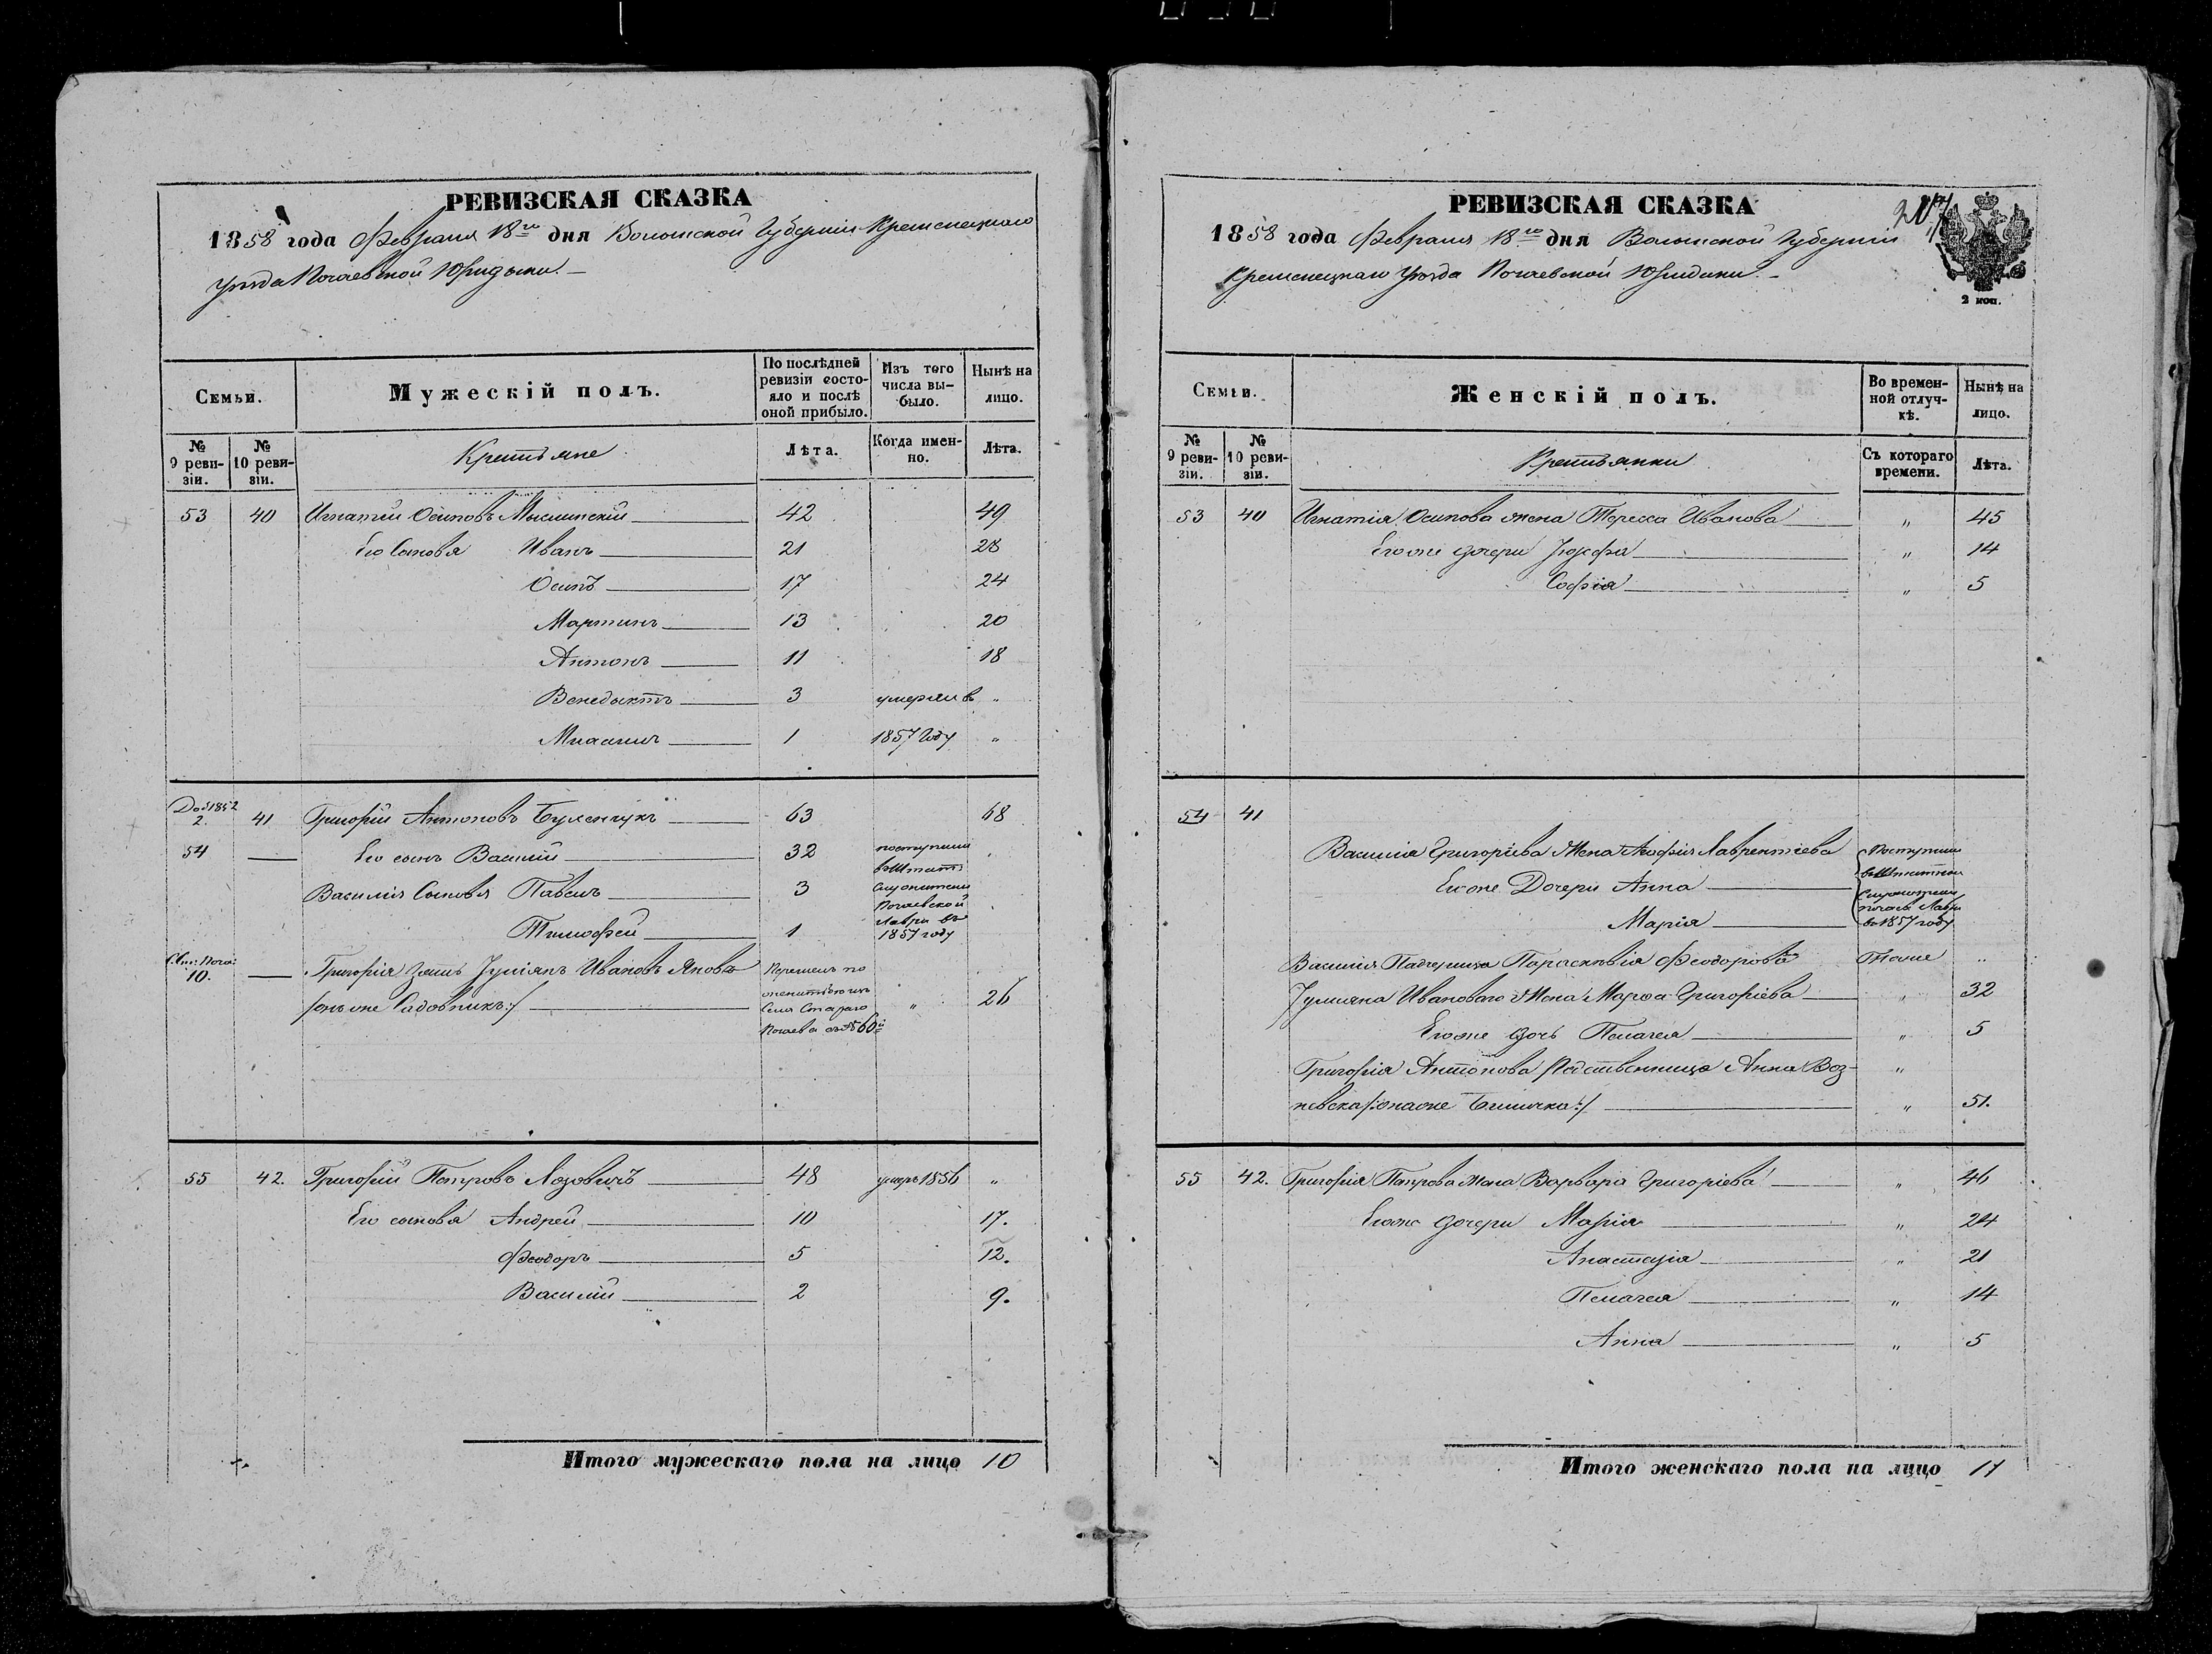 РЕВИЗСКАЯ СКАЗКА
1858 года Февраля 18го дня Волынской Губерніи Кременецкаго
уѣзда Почаевской Юридыки.
Семьи.
Мужескій полъ.
По послѣдней ревизіи состояло и послѣ оной прибыло.
Изъ того числа выбыло.
Нынѣ на лицо.
№ 9 ревизіи.
№ 10 ревизіи.
Крестьяне
Лѣта.
Когда именно.
Лѣта.
53 40 Игнатій Осиповъ Мыслинскій 42 49
Его Сыновья Иванъ 21 28
Осипъ 17 24
Мартинъ 13 20
Антонъ 11 18
Венедыктъ 3 умерли в "
1 1857 Году "
Доп 1852
2. 41 Григорій Антоновъ 63 68
54 — Его сынъ Василій 32 поступили
въ Штатн
Василія Сыновья Павелъ 3 служители
Почаевской
Тимофей 1 Лавры въ
1857 году
10. — Григорія зять Јуліянъ Ивановъ Яновъ Перешелъ по
/онъ же Садовникъ:/ " 26
Села Стараго
Почаева съ № 60й
55 42. Григорій Петровъ Лозовичъ 48 умеръ 1856 "
Его сыновья Андрей 10 17.
Феодоръ 5 12.
Василій 2 9.
Итого мужескаго пола на лицо 10
РЕВИЗСКАЯ СКАЗКА
207
1858 года Февраля 18го дня Волынской Губерніи
Кременецкаго Уѣзда Почаевской Юридики.
2 коп.
Семьи.
Женскій полъ.
Во временной отлучкѣ.
Нынѣ на лицо.
№ 9 ревизіи.
№ 10 ревизіи.
Крестьянки
Съ котораго времени.
Лѣта.
53 40 Игнатія Осипова жена Тересса Иванова " 45
Его же дочери Јозефа " 14
Софія " 5
54 41
Василія Григоріева Жена Афія Лаврентіева Поступили
въ Штатные
Его же Дочери Анна Служители
Почаев. Лавры
Марія въ 1857 году
Василія Падчерица Параскевія Феодорова Тоже "
Јуліяна Иванового Жена Марфа Григоріева " 32
Его же дочь Пелагея " 5
Григорія Антонова Родственница Анна Воз- "
невска /:она же :/ " 51.
55 42. Григорія Петрова Жена Варвара Григоріева " 46
Его же дочери Марія " 24
Анастазія " 21
Пелагея " 14
Анна " 5
Итого женскаго пола на лицо 11